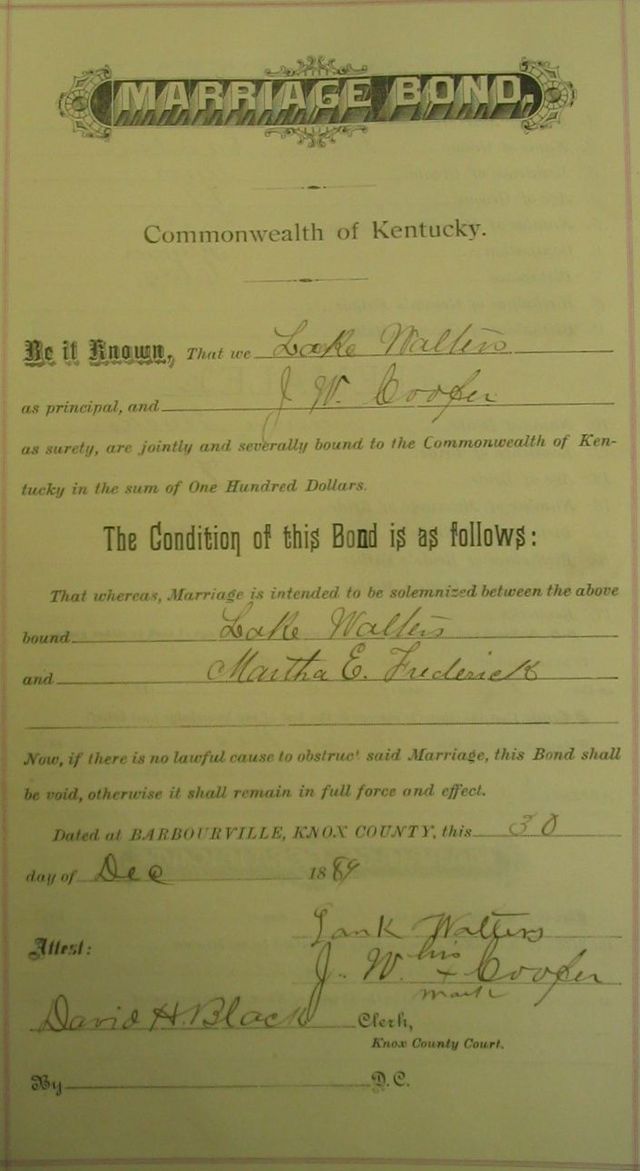 MARRIAGE BOND.
Commonwealth of Kentucky.
Be it Known, That we Lake Walters
as principal, and J W. Cooper
as surety, are jointly and severally bound to the Commonwealth of Ken-
tucky in the sum of One Hundred Dollars.
The Condition of this Bond is as follows:
That whereas, Marriage is intended to be solemnized between the above
bound Lake Walters
and Martha E. Frederick
Now, if there is no lawful cause to obstruc' said Marriage, this Bond shall
be void, otherwise it shall remain in full force and effect.
Dated at BARBOURVILLE, KNOX COUNTY, this 30
day of Dec 1889
Walters
Attest: J. W. his x mark Cooper
David H. Black Clerk,
Knox County Court.
By D.C.